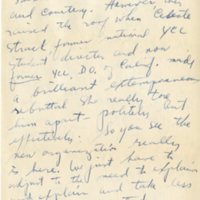 and courtesy. However
raised the roof when Celeste
Struck former national YCL
student director and now
former YCL D.O. of Calif. made
a brilliant extemporaneous
rebuttal she really tore
him apart - politely but
effectively. So you see the
new organization really
is here. We just have to
adjust to the need to explain
explain and take